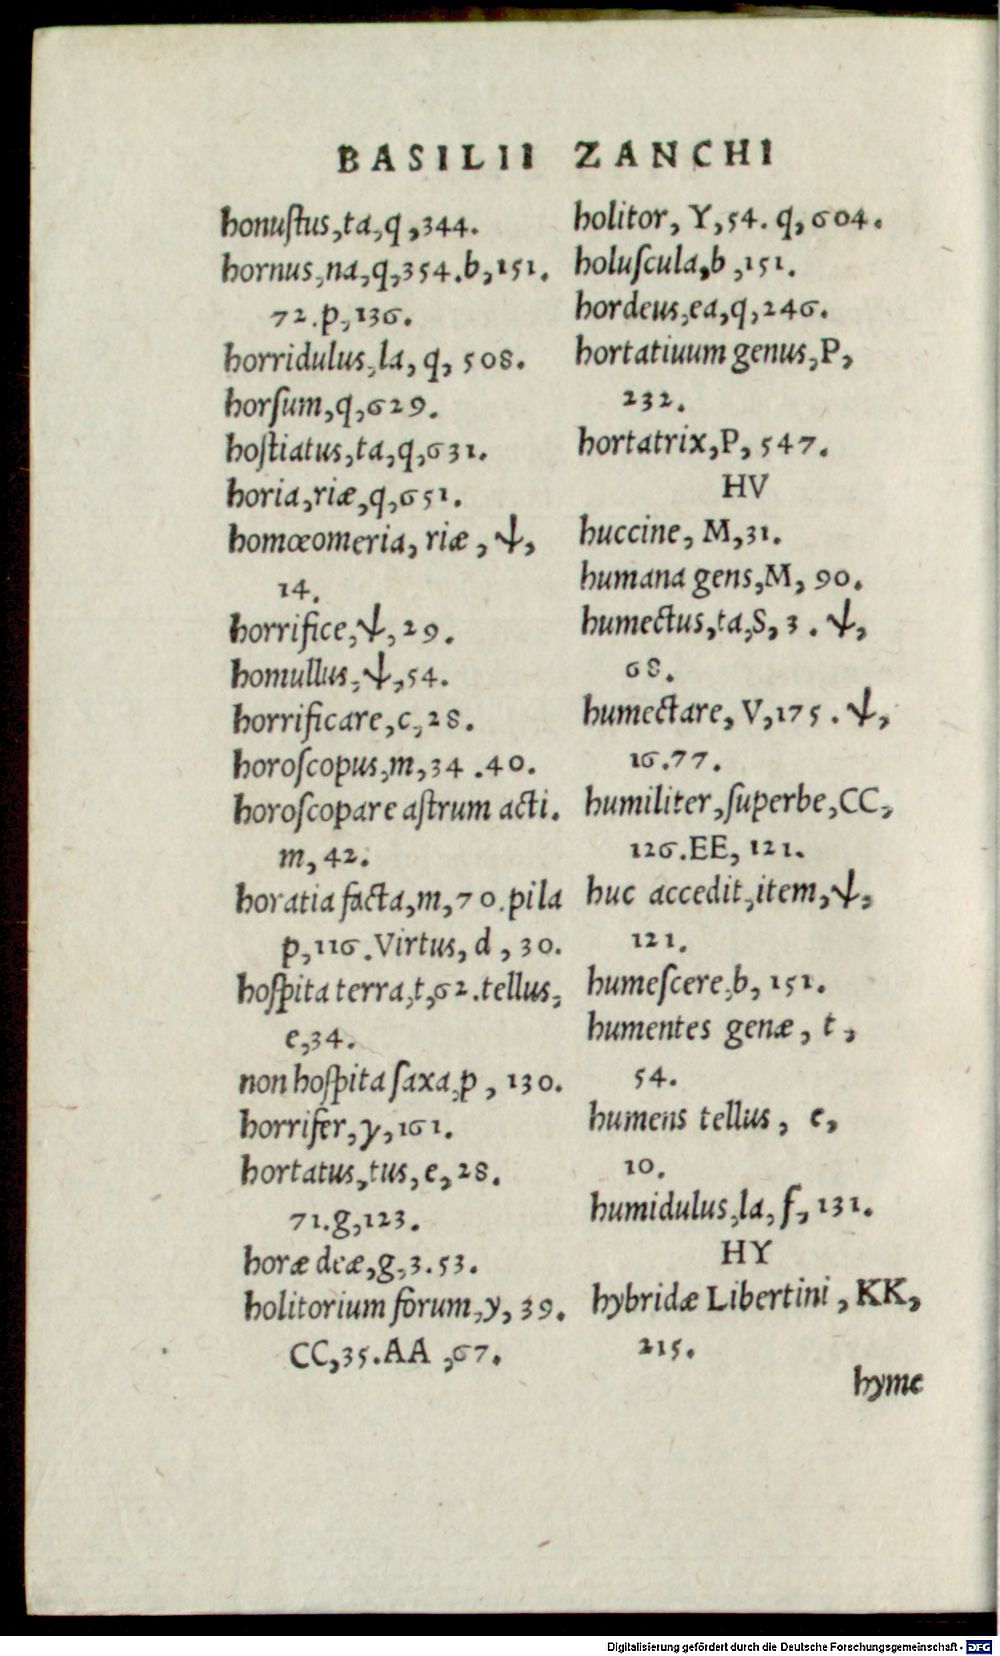 BASILII ZANCHI
honuſtus,ta,q,344.
hornus,na,q,354.b,151.
72.p,136.
horridulus,la,q,508.
horſum,q,629.
hoſtiatus,ta,q,631.
horia,riæ,q,651.
homœomeria, riæ, ψ,
14.
horrifice,ψ,29.
homullus,ψ,54.
horrificare,c,28.
horoſcopus,m,34.40.
horoſcopare aſtrum acti.
m,42.
horatia facta,m,70.pila
p,116.Virtus, d, 30.
hoſpita terra,t,62.tellus,
e,34.
non hoſpita ſaxa,p, 130.
horrifer,y,161.
hortatus,tus,e,28.
71.g,123.
horæ deæ,g,3.53.
holitorium forum,y,39.
CC,35.AA,67.
holitor, Y,54. q,604.
holuſcula,b,151.
hordeus,ea,q,246.
hortatiuum genus,P,
232.
hortatrix,P, 547.
HV
huccine, M,31.
humana gens,M, 90.
humectus,ta,S, 3. ψ,
68.
humectare, V,175. ψ,
16.77.
humiliter,ſuperbe,CC,
126.EE, 121.
huc accedit,item,ψ,
121.
humeſcere,b, 151.
humentes genæ, t,
54.
humens tellus, e,
10.
humidulus,la, f, 131.
HY
hybridæ Libertini, KK,
215.
hyme
Digitalisierung gefördert durch die Deutsche Forschungsgemeinschaft - DFG